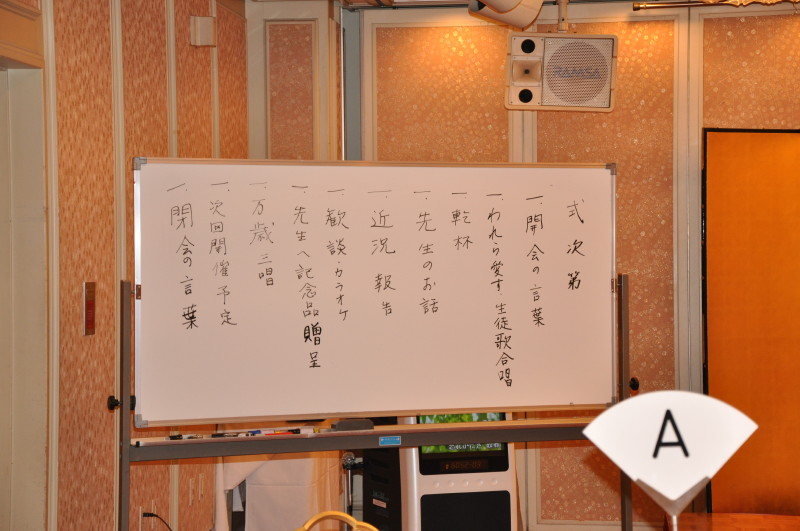 式次第
一. 開会の言葉
一. われら愛す 生徒歌合唱
一. 乾杯
一. 先生のお話
一. 近況報告
一. 歓談・カラオケ
一. 先生へ記念品贈呈
一. 万歳三唱
一. 次回開催予定
一. 閉会の言葉
RAMSA
A